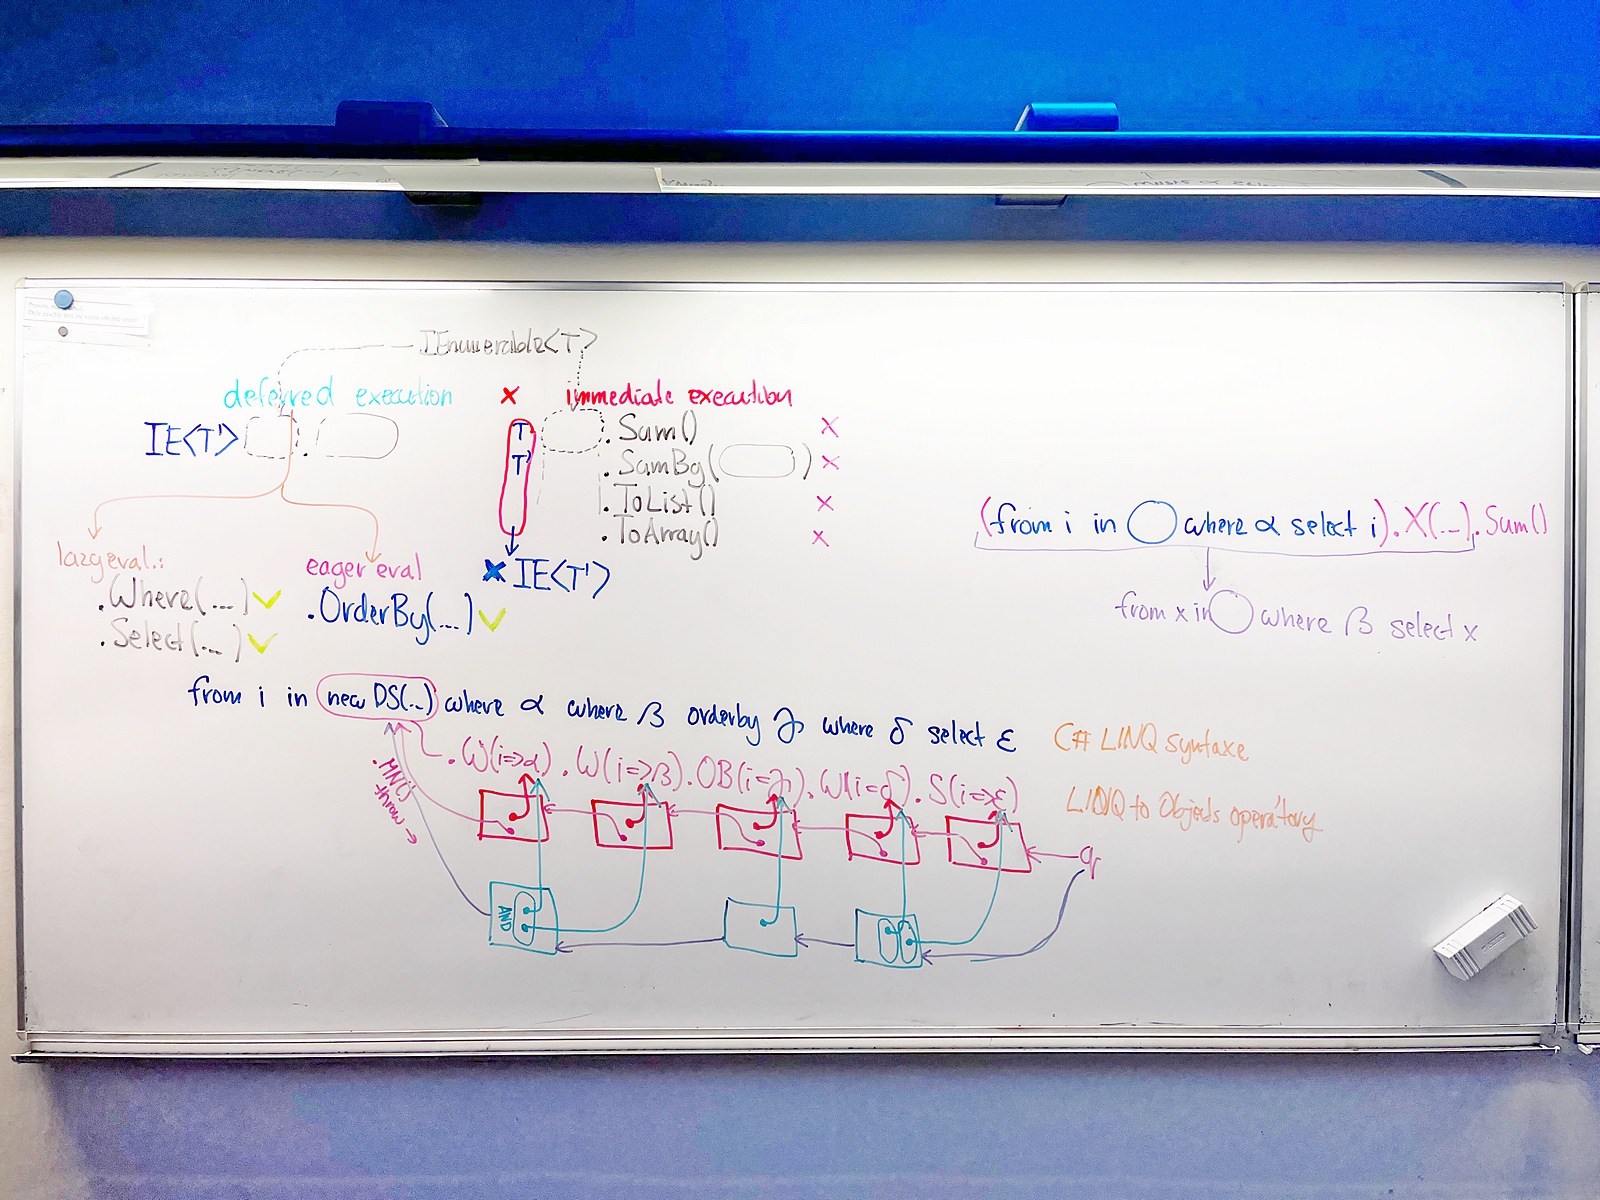 IEnumerable<T>
deferred execution × immediate execution
IE<T'> .
T
T'
.Sum() ×
.SumBy( ) ×
.ToList() ×
.ToArray() ×
× IE<T'>
lazy eval.:
.Where(...) ✓
.Select(...) ✓
eager eval
.OrderBy(...) ✓
(from i in where α select i).X(...).Sum()
from x in where β select x
from i in new DS(...) where α where β orderby γ where δ select ε
C# LINQ syntaxe
.W(i=>α).W(i=>β).OB(i=>γ).W(i=>δ).S(i=>ε)
LINQ to Objects operátory
.MN()
throw →
q
AND